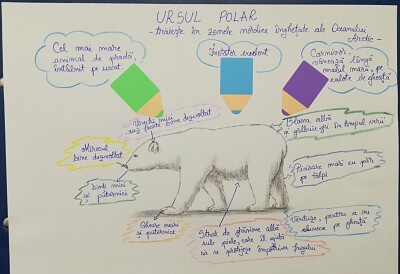 URSUL POLAR
- trăiește în zonele nordice înghețate ale Oceanului
Arctic -
Cel mai mare
animal de pradă,
întâlnit pe uscat.
Înotător excelent
Carnivor,
vânează lângă
malul mării, pe
calote de gheață
Urechi mici
sunt foarte bine dezvoltat
Blana albă
și gălbuie-gri în timpul verii
Mirosul
bine dezvoltat
Picioare mari cu păr
pe tălpi
Dinți mici
și puternici
Gheare mari
și puternice
Strat de grăsime albă
sub piele, care îl ajută
să se protejeze împotriva frigului
Ventuze, pentru a nu
aluneca pe gheață